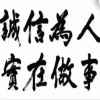 誠信為人
實在做事